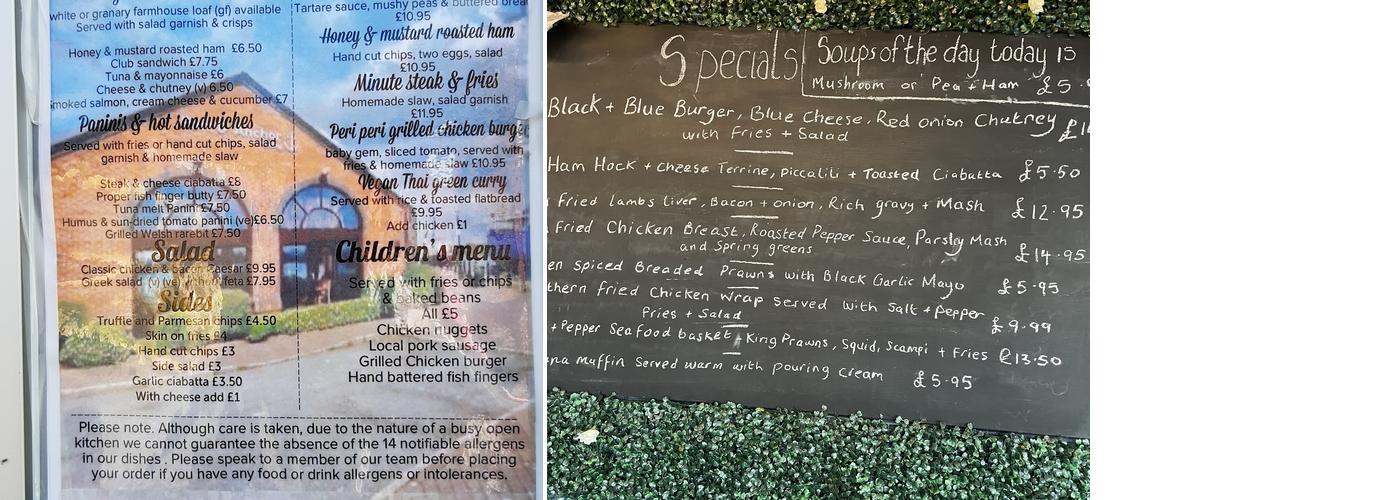 white or granary farmhouse loaf (gf) available
Served with salad garnish & crisps
Honey & mustard roasted ham £6.50
Club sandwich £7.75
Tuna & mayonnaise £6
Cheese & chutney (v) 6.50
smoked salmon, cream cheese & cucumber £7
Paninis & hot sandwiches
Served with fries or hand cut chips, salad
garnish & homemade slaw
Steak & cheese ciabatta £8
Proper fish finger butty £7.50
Tuna melt Panini £7.50
Humus & sun-dried tomato panini (ve)£6.50
Grilled Welsh rarebit £7.50
Salad
Classic chicken & bacon Caesar £9.95
Greek salad (v) (ve) without feta £7.95
Sides
Truffle and Parmesan chips £4.50
Skin on fries £4
Hand cut chips £3
Side salad £3
Garlic ciabatta £3.50
With cheese add £1
Tartare sauce, mushy peas & buttered bread
£10.95
Honey & mustard roasted ham
Hand cut chips, two eggs, salad
£10.95
Minute steak & fries
Homemade slaw, salad garnish
£11.95
Peri peri grilled chicken burger
baby gem, sliced tomato, served with
fries & homemade slaw £10.95
Vegan Thai green curry
Served with rice & toasted flatbread
£9.95
Add chicken £1
Children's menu
Served with fries or chips
& baked beans
All £5
Chicken nuggets
Local pork sausage
Grilled Chicken burger
Hand battered fish fingers
Please note. Although care is taken, due to the nature of a busy open
kitchen we cannot guarantee the absence of the 14 notifiable allergens
in our dishes . Please speak to a member of our team before placing
your order if you have any food or drink allergens or intolerances.
Specials
Soups of the day today is
Mushroom or Pea + Ham £5.
Black + Blue Burger, Blue Cheese, Red onion Chutney
with Fries + Salad
Ham Hock + cheese Terrine, piccalili + Toasted Ciabatta £5.50
Fried lambs liver, Bacon + onion, Rich gravy + Mash £12.95
Fried Chicken Breast, Roasted Pepper Sauce, Parsley Mash
and Spring greens £14.95
en Spiced Breaded Prawns with Black Garlic Mayo £5.95
thern fried Chicken Wrap served with Salt + pepper
Fries + Salad £9.99
+ Pepper Seafood basket, King Prawns, Squid, Scampi + Fries £13.50
na Muffin Served warm with pouring cream £5.95